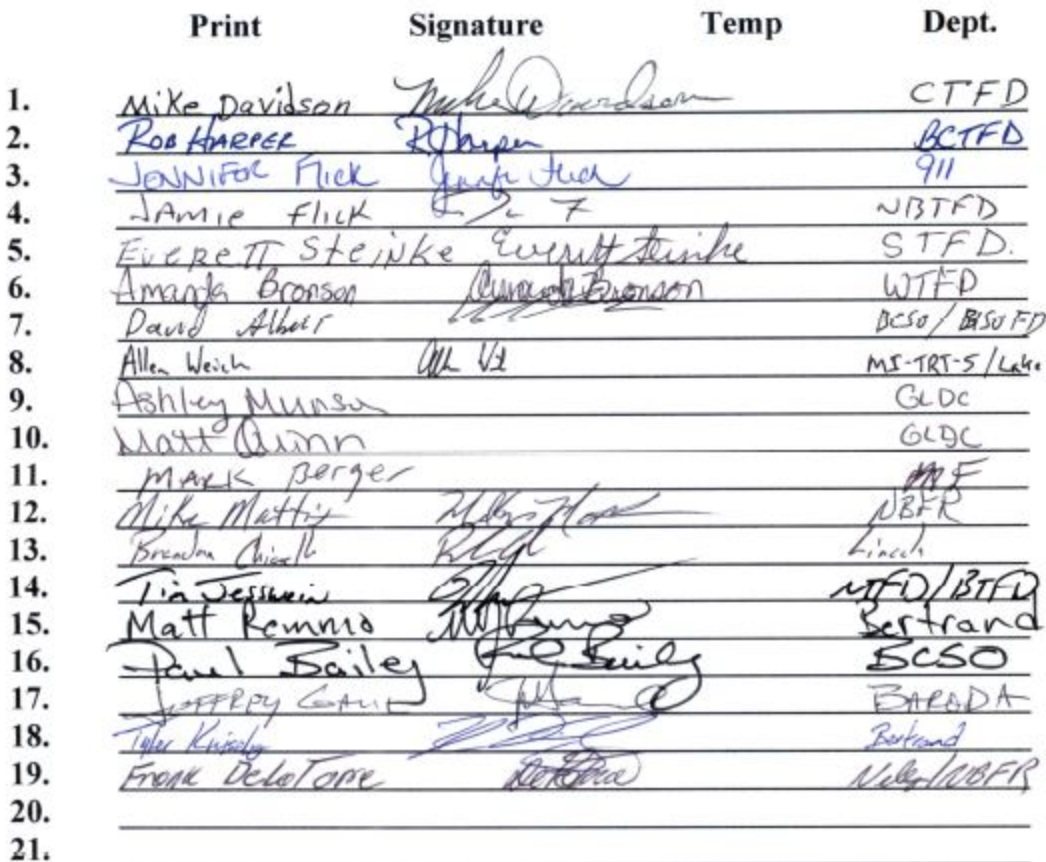 Print Signature Temp Dept.
1. Mike Davidson Mike Davidson CTFD
2. ROB HARPER R Harper BCTFD
3. JENNIFER Flick Flick 911
4. JAmie flick NBTFD
5. EVERETT SteiNKe Everett Steinke STFD.
6. Amanda Bronson Amanda Bronson WTFD
7. David Albert BCSO/
8. Allen MI-TRT-5/Lake
9. Ashley Munson GLDC
10. Matt Quinn GLDC
11. MARK Berger
12. Mike NBFR
13. Lincoln
14. Tim Jesswein BTFD
15. Matt Remmo Bertrand
16. Paul Bailey Paul Bailey BCSO
17. JEFFREY BARODA
18. Tyler Bertrand
19. Frank DelaTorre /NBFR
20.
21.